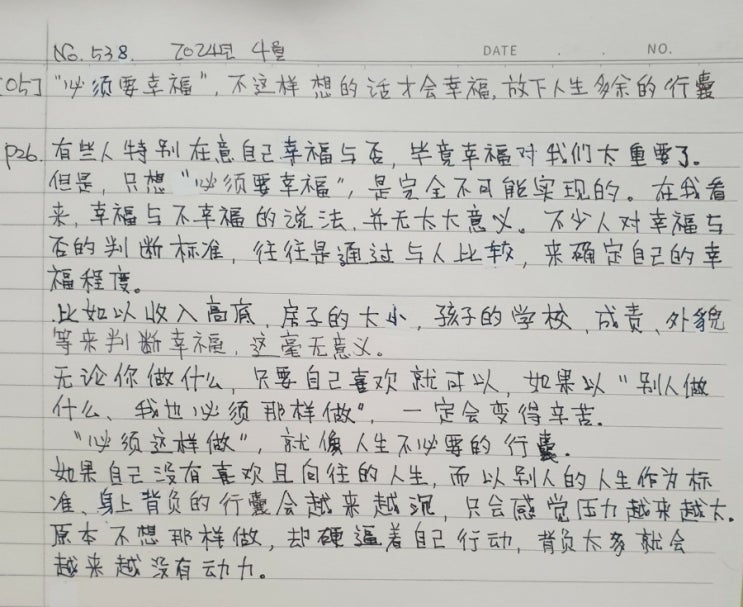 No. 538. 2024년 4월 DATE . . NO.
[05] "必须要幸福", 不这样想的话才会幸福, 放下人生多余的行囊
p26. 有些人特别在意自己幸福与否, 毕竟幸福对我们太重要了.
但是, 只想"必须要幸福", 是完全不可能实现的。在我看
来, 幸福与不幸福的说法, 并无太大意义。不少人对幸福与
否的判断标准, 往往是通过与人比较, 来确定自己的幸
福程度。
比如以收入高底, 房子的大小, 孩子的学校、成责、外貌
等来判断幸福, 这毫无意义。
无论你做什么, 只要自己喜欢就可以, 如果以"别人做
什么、我也必须那样做", 一定会变得辛苦.
"必须这样做", 就像人生不必要的行囊.
如果自己没有喜欢且向往的人生, 而以别人的人生作为标
准、身上背负的行囊会越来越沉, 只会感觉压力越来越大.
原本不想那样做, 却硬逼着自己行动, 背负太多就会
越来越没有动力。